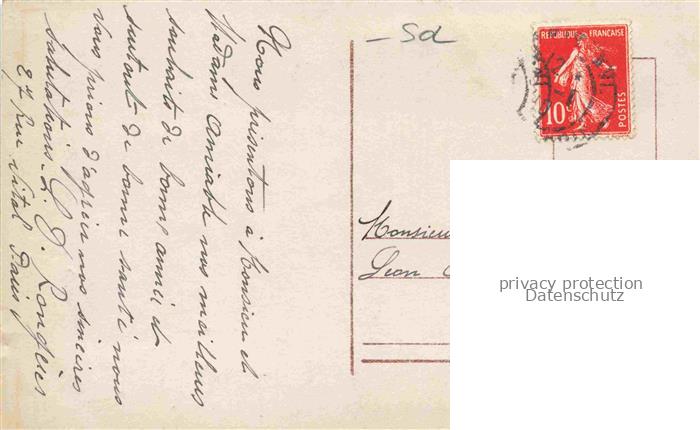 Nous présentons à Monsieur et
Madame Amiable nos meilleurs
souhaits de bonne année et
surtout de bonne santé nous
vous prions d'agréer nos sincères
salutations.
27 rue Vital Paris
- Sd
REPUBLIQUE FRANÇAISE
10c
POSTES
Monsieur
Leon
privacy protection
Datenschutz